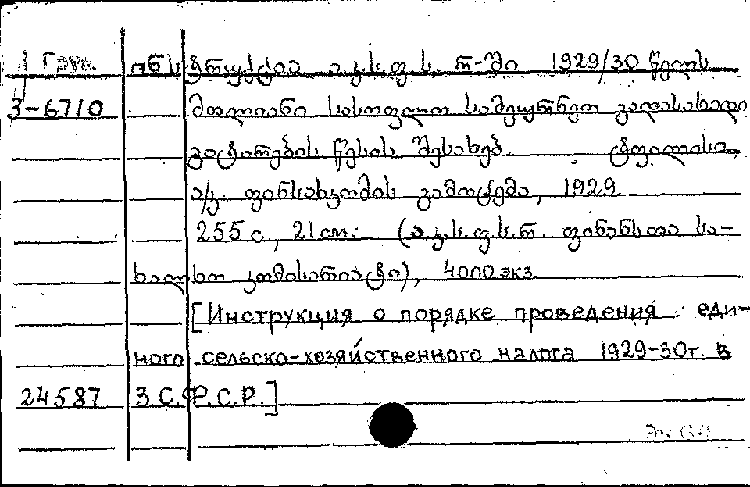 Груз. ინსტრუქცია ა.კ.ს.ფ.ს.რ-ში 1929/30 წელს
3-6710 მთლიანი სასოფლო სამეურნეო გადასახადი
გატარების წესის შესახებ. ტფილისი,
ა/კ. ფინსახკომის გამოცემა, 1929
255 с., 21 см. (ა.კ.ს.ფ.ს.რ. ფინანსთა სა-
ხალხო კომისარიატი), 4000 экз.
[Инструкция о порядке проведения еди-
ного сельско-хозяйственного налога 1929-30г. в
24587 З.С.Ф.С.Р.]